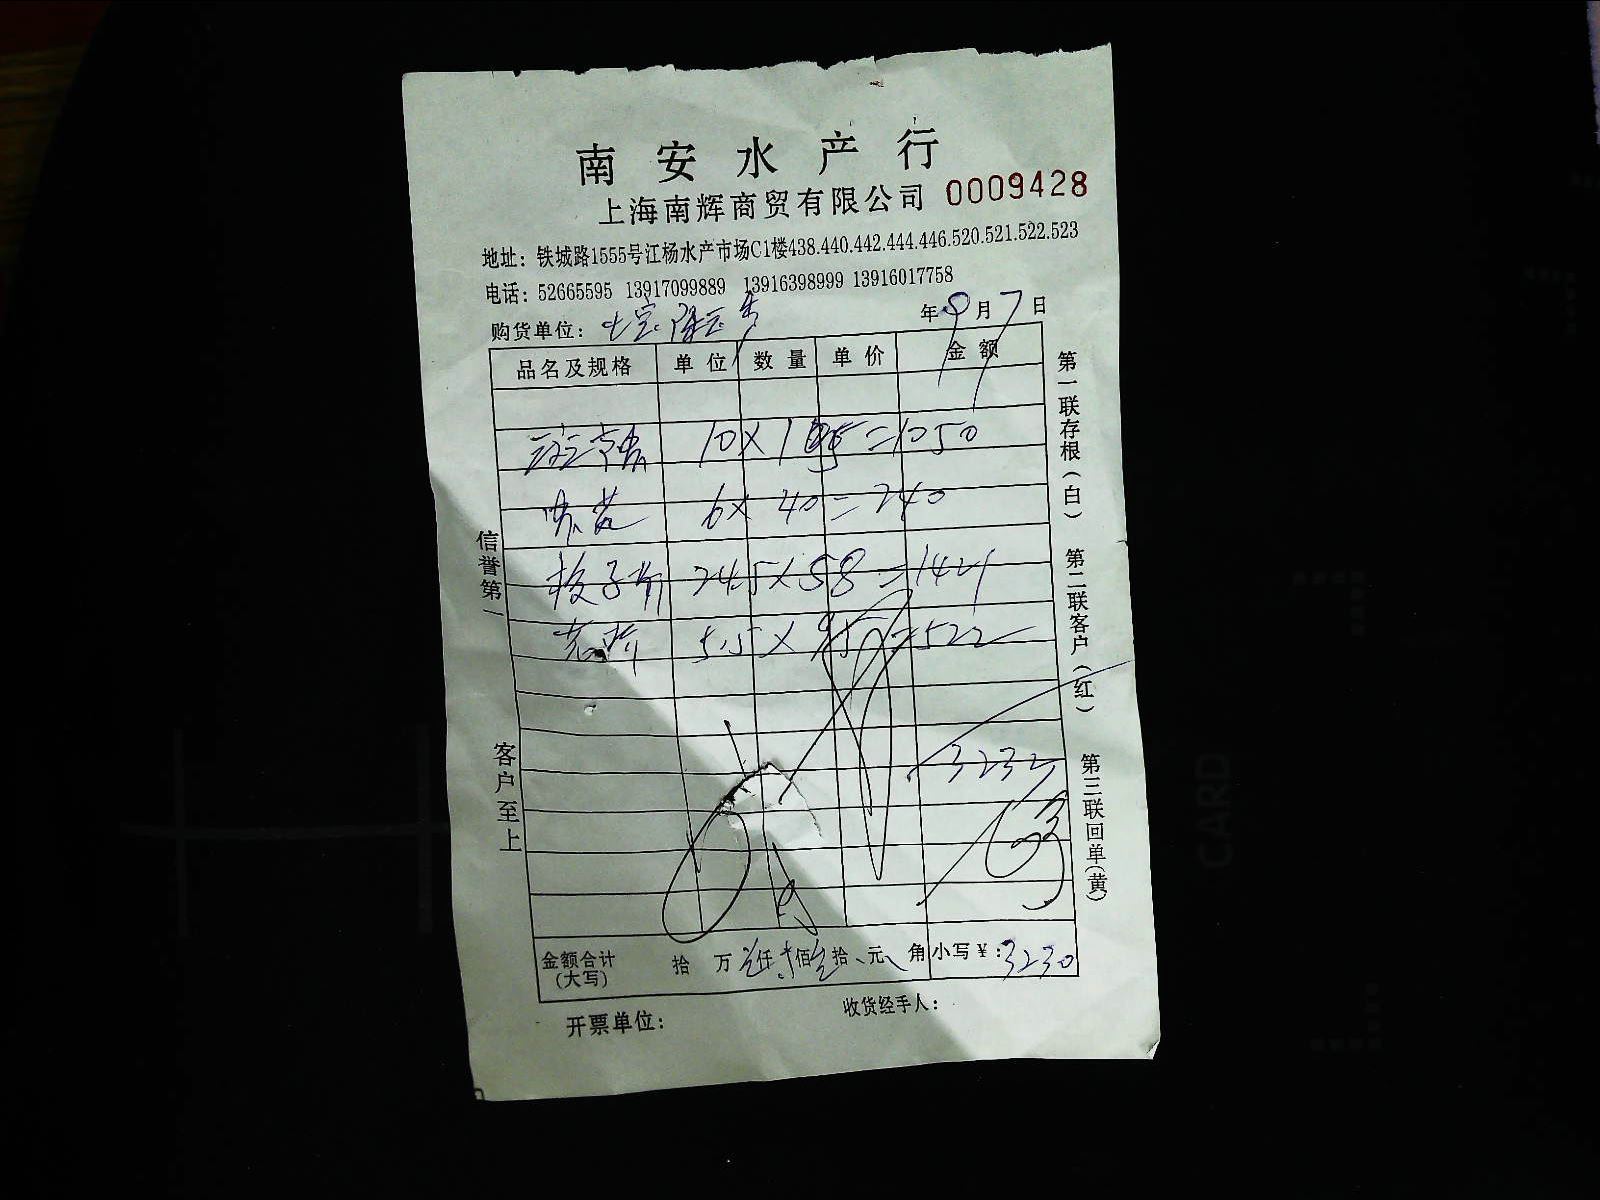 南安水产行
上海南辉商贸有限公司 0009428
地址：铁城路1555号江杨水产市场C1楼438.440.442.444.446.520.521.522.523
电话：52665595 13917099889 13916398999 13916017758
购货单位：
年 9 月 7 日
品名及规格 单位 数量 单价 金额
10×105=1050
6×40=240
梭子蟹 24.5×58=1421
5.5×95=522
3232
金额合计（大写） 拾 万 仟 佰 拾 元 角 小写￥：3230
开票单位： 收货经手人：
信誉第一
客户至上
第一联存根（白）
第二联客户（红）
第三联回单（黄）